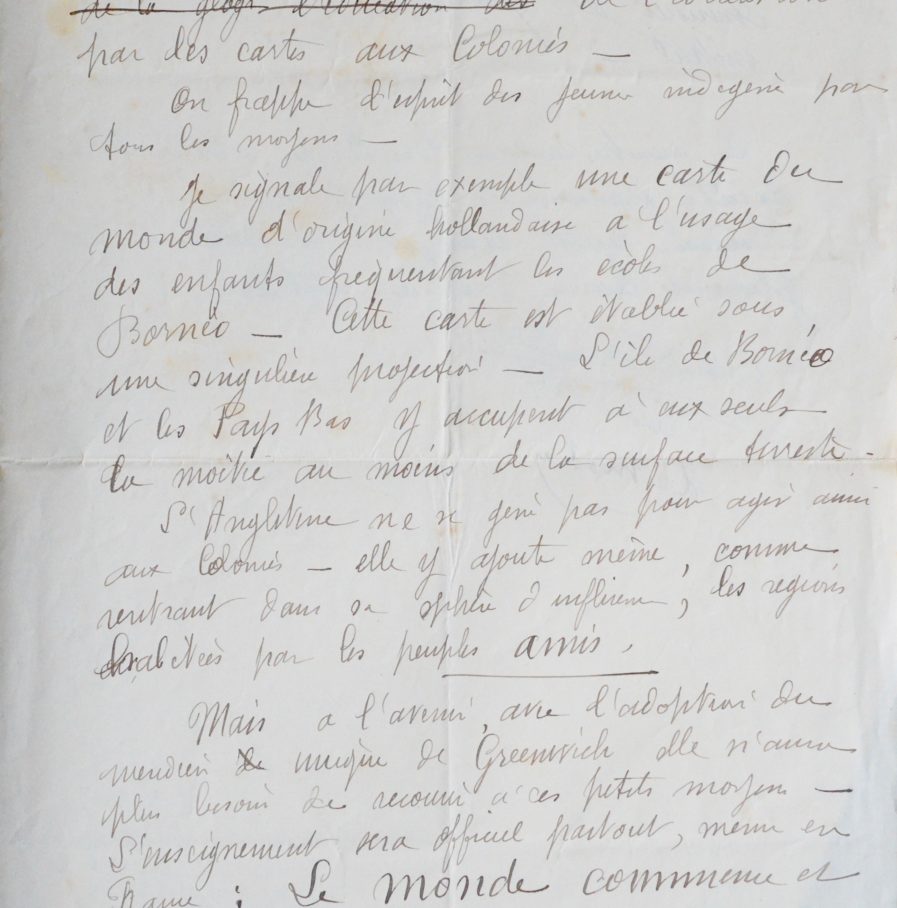 de la géogr d'éducation des de l'éducation
par des cartes aux Colonies —
On frappe l'esprit des jeunes indigènes par
tous les moyens —
Je signale par exemple une carte du
monde d'origine hollandaise à l'usage
des enfants fréquentant les écoles de
Bornéo — Cette carte est établie sous
une singulière projection — L'île de Bornéo
et les Pays Bas y occupent à eux seuls
la moitié au moins de la surface terrestre.
L'Angleterre ne se gêne pas pour agir ainsi
aux Colonies — elle y ajoute même, comme
rentrant dans sa sphère d'influence, les régions
habitées par les peuples amis.
Mais à l'avenir, avec l'adoption du
méridien unique de Greenwich elle n'aura
plus besoin de recourir à ces petits moyens —
L'enseignement sera officiel partout, même en
France : Le monde commence et